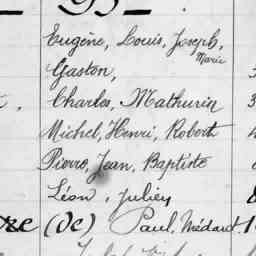 Eugène, Louis, Joseph,
Marie
Gaston,
Charles, Mathurin
Michel, Henri, Robert
Pierre, Jean, Baptiste
Léon, Julien
(de) Paul, Médard